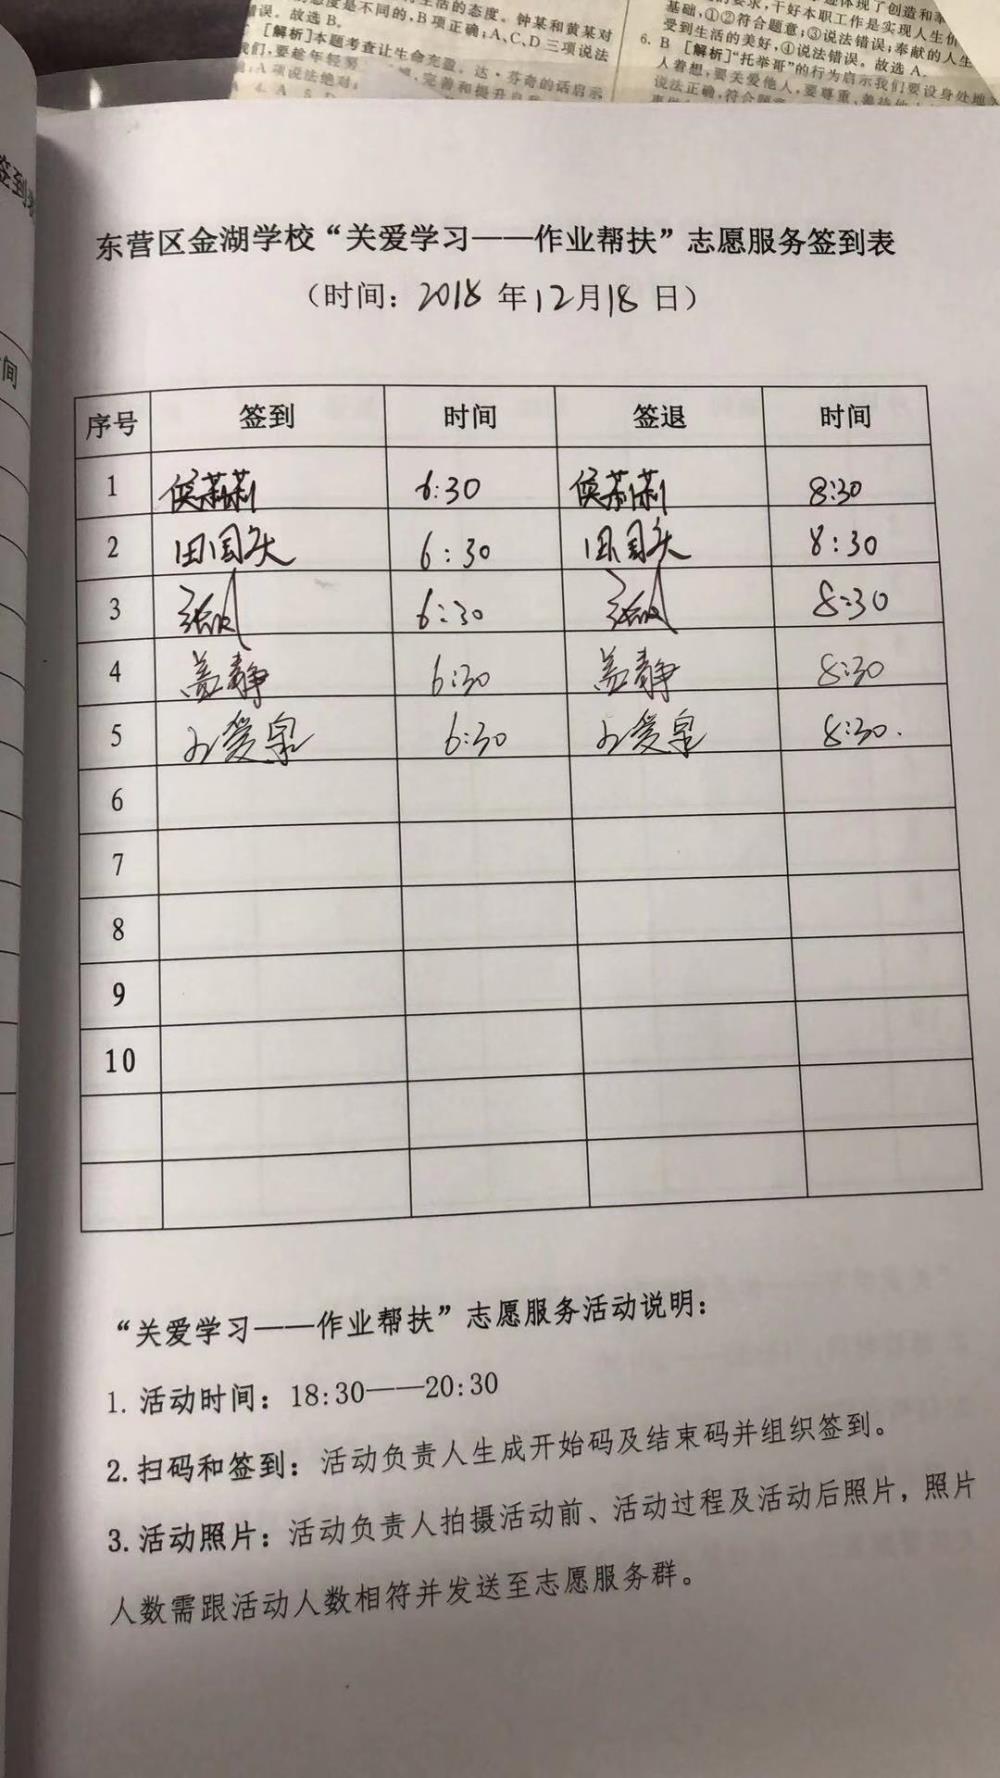 活的态度。钟某和黄某对
态度是不同的,B项正确;A、C、D三项说法
错误。故选B。
[解析]本题考查让生命充盈。达·芬奇的话启示
我们,要趁年轻努
完善和提升自
A项说法绝对;
4. A 5. D
体现了创造和奉
要求,干好本职工作是实现人生价
基础,①②符合题意;③说法错误;奉献的人生
受到生活的美好,④说法错误。故选 A。
6. B [解析]“托举哥”的行为启示我们要设身处地
人着想,要关爱他人,要尊重、善待他
说法正确,符合题意
签到
间
东营区金湖学校“关爱学习——作业帮扶”志愿服务签到表
(时间: 2018 年 12月 18 日)
序号 签到 时间 签退 时间
1 侯莉莉 6:30 侯莉莉 8:30
2 田国庆 6:30 田国庆 8:30
3 6:30 8:30
4 盖静 6:30 盖静 8:30
5 爱泉 6:30 爱泉 8:30.
6
7
8
9
10
“关爱学习——作业帮扶”志愿服务活动说明:
1. 活动时间: 18:30——20:30
2. 扫码和签到: 活动负责人生成开始码及结束码并组织签到。
3. 活动照片: 活动负责人拍摄活动前、活动过程及活动后照片，照片
人数需跟活动人数相符并发送至志愿服务群。